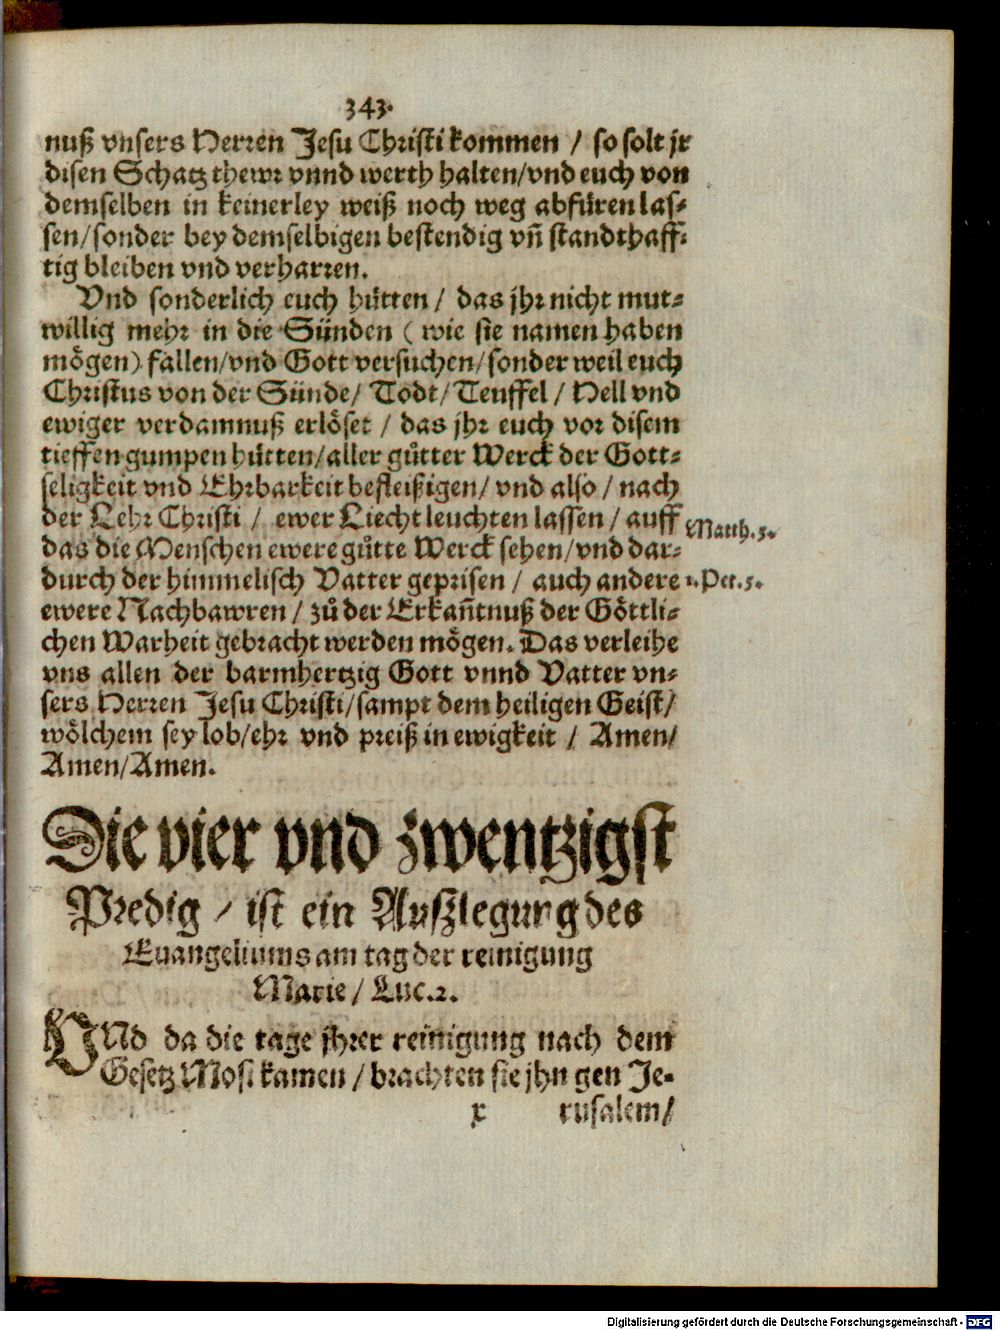 343.
nuß vnsers Herren Jesu Christi kommen / so solt jr
disen Schatz thewr vnnd werth halten/vnd euch von
demselben in keinerley weiß noch weg abfüren las-
sen/sonder bey demselbigen bestendig vñ standthaff-
tig bleiben vnd verharren.
Vnd sonderlich euch hütten / das jhr nicht mut-
willig mehr in die Sünden ( wie sie namen haben
mögen) fallen/vnd Gott versuchen/sonder weil euch
Christus von der Sünde/ Todt/ Teuffel / Hell vnd
ewiger verdamnuß erlöset / das jhr euch vor disem
tieffen gumpen hütten/aller gůtter Werck der Gott-
seligkeit vnd Ehrbarkeit befleißigen/ vnd also / nach
der Lehr Christi / ewer Liecht leuchten lassen / auff
Matth.5.
das die Menschen ewere gůtte Werck sehen/vnd dar-
durch der himmelisch Vatter geprisen / auch andere
1.Pet.5.
ewere Nachbawren / zů der Erkañtnuß der Göttli-
chen Warheit gebracht werden mögen. Das verleihe
vns allen der barmhertzig Gott vnnd Vatter vn-
sers Herren Jesu Christi/sampt dem heiligen Geist/
wölchem sey lob/ehr vnd preiß in ewigkeit / Amen/
Amen/Amen.
Die vier vnd zwentzigst
Predig / ist ein Außlegung des
Euangeliums am tag der reinigung
Marie / Luc.2.
VNd da die tage jhrer reinigung nach dem
Gesetz Mosi kamen / brachten sie jhn gen Je-
x rusalem/
Digitalisierung gefördert durch die Deutsche Forschungsgemeinschaft - DFG